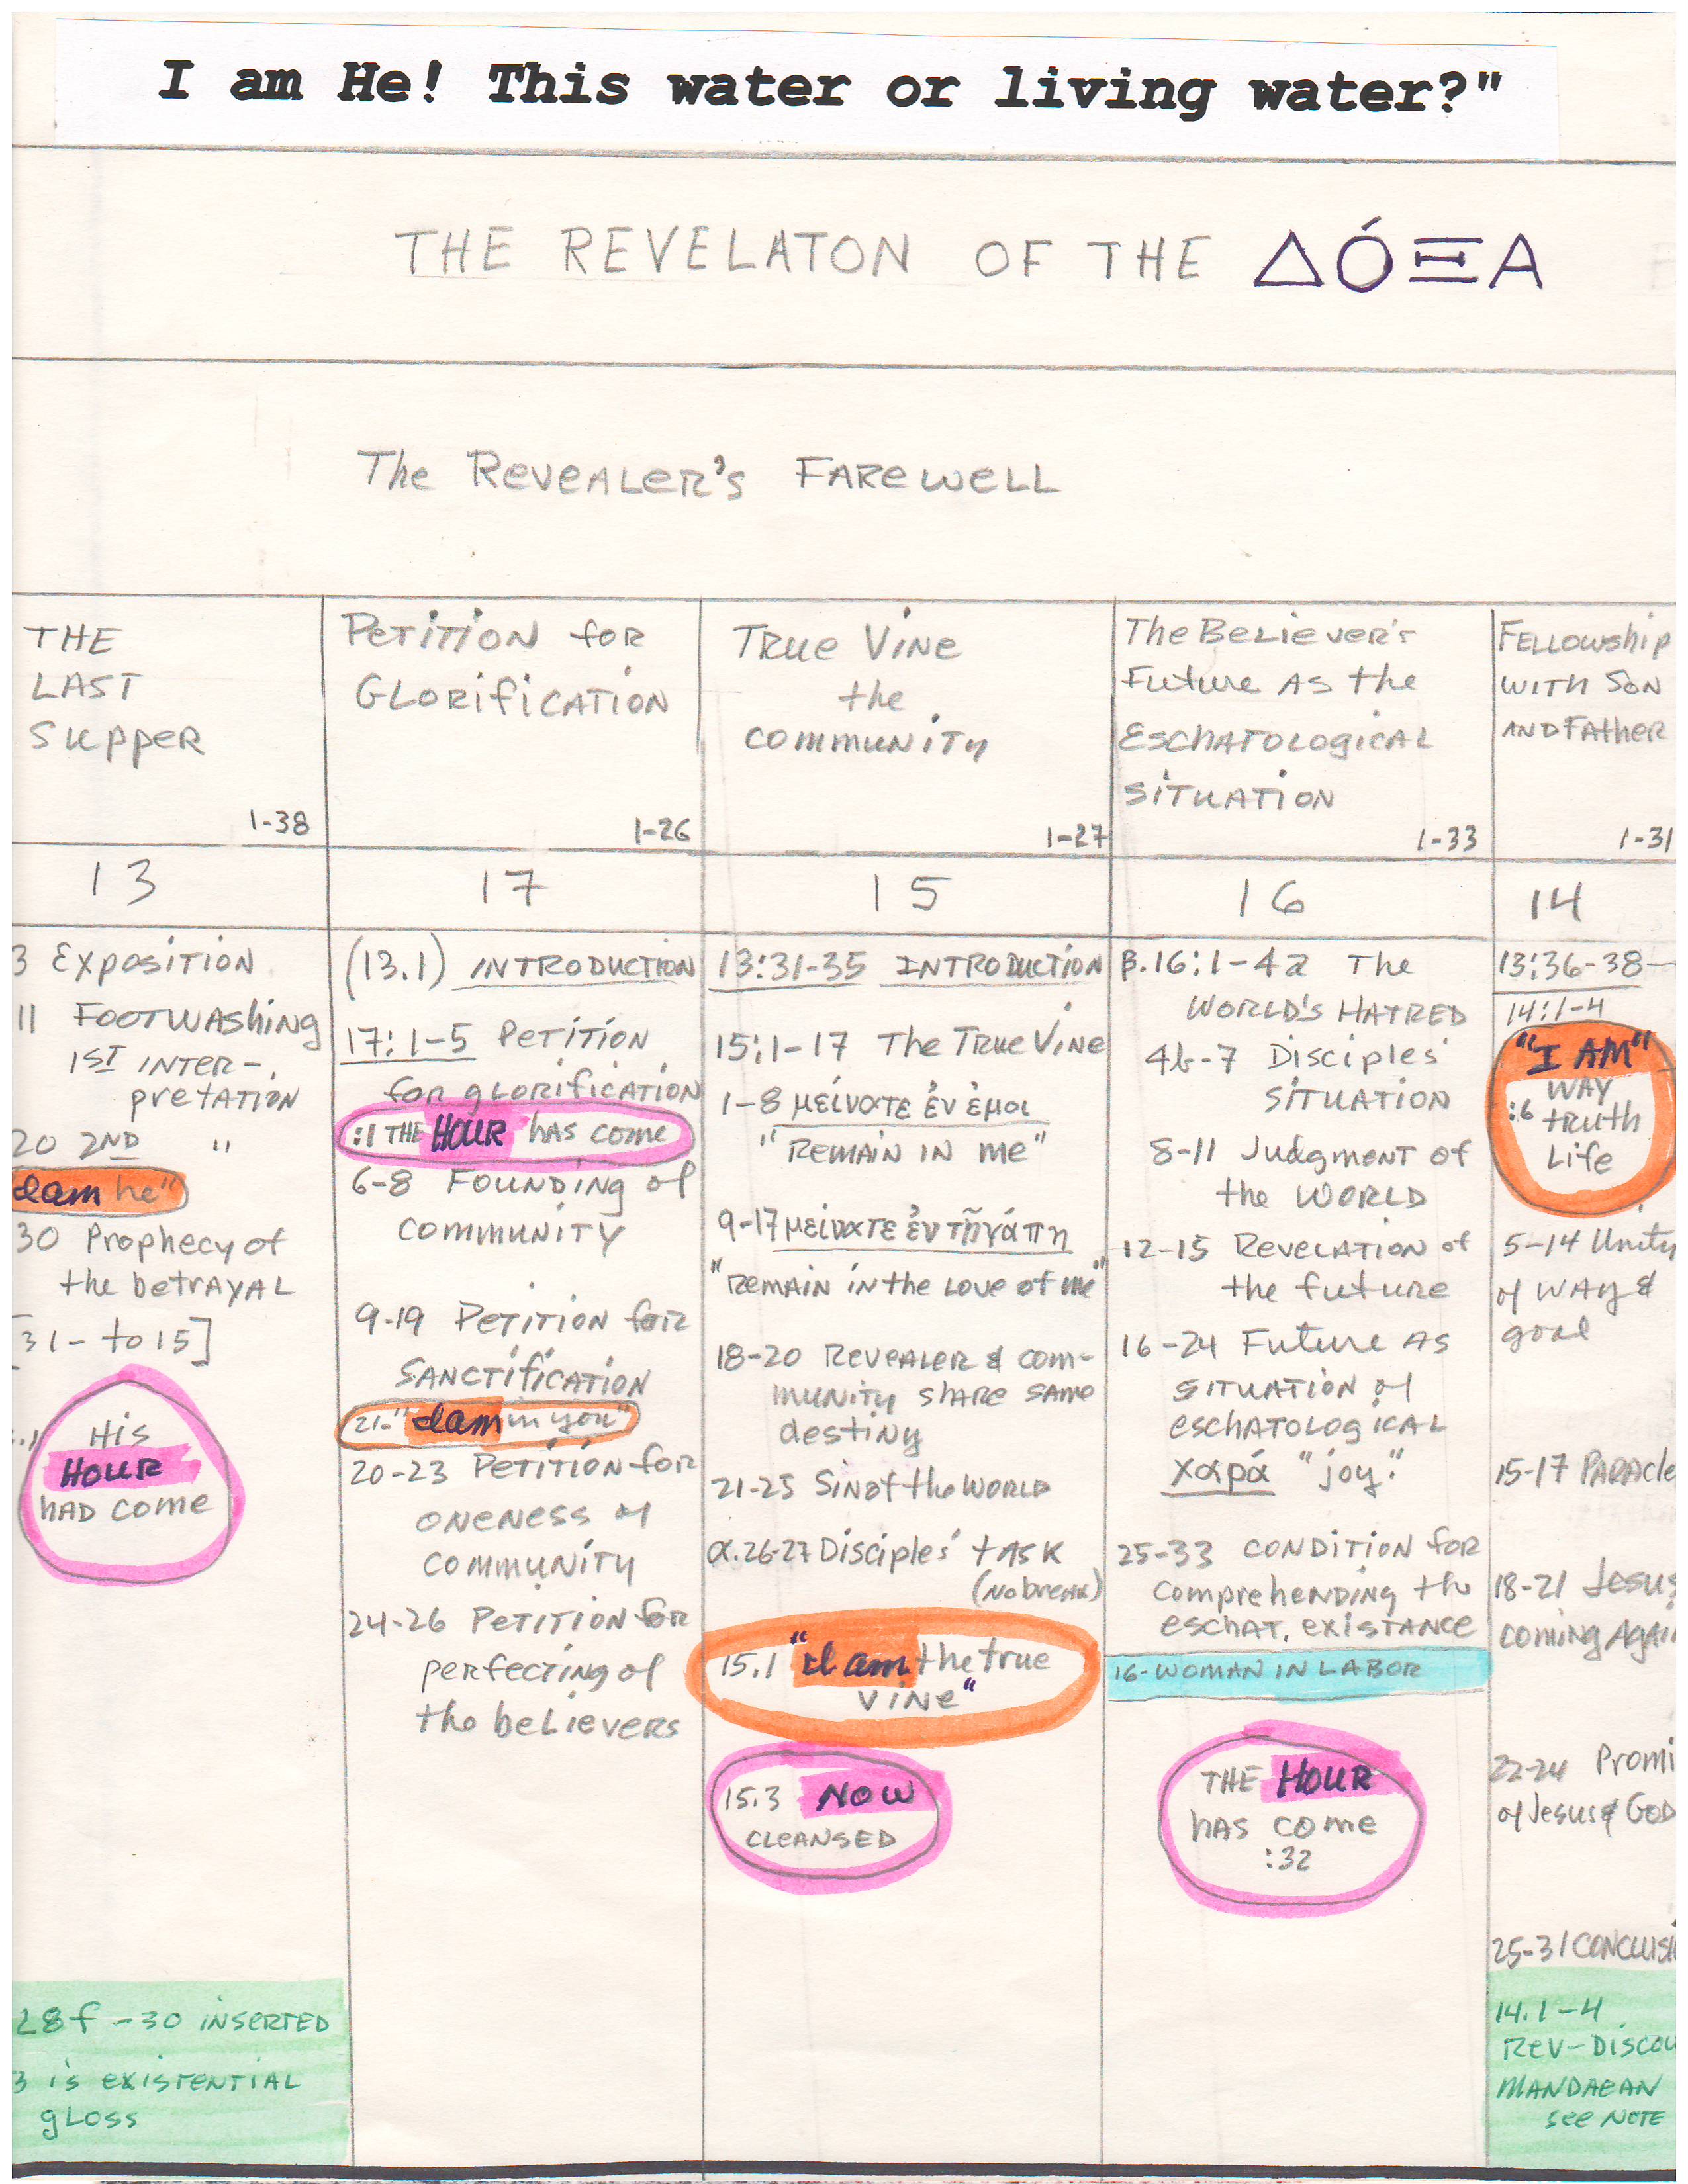 I am He! This water or living water?"
THE REVELATON OF THE ΔΌΞΑ
The Revealer's Farewell
THE
LAST
SUPPER
1-38
13
3 Exposition
11 Footwashing
1ST INTER-
pretation
20 2ND "
I am he"
30 Prophecy of
the betrayal
[31- to 15]
.1 His
HOUR
had come
28f -30 inserted
3 is existential
gloss
Petition for
Glorification
1-26
17
(13.1) INTRODUCTION
17:1-5 Petition
for glorification
:1 THE HOUR has come
6-8 Founding of
community
9-19 Petition for
Sanctification
21-"I am in you"
20-23 Petition for
oneness of
community
24-26 Petition for
perfecting of
the believers
True Vine
the
community
1-27
15
13:31-35 INTRODUCTION
15:1-17 The True Vine
1-8 μείνατε ἐν ἐμοι
"Remain in me"
9-17 μείνατε ἐν τῇ γάπη
"Remain in the love of me"
18-20 Revealer & com-
munity share same
destiny
21-25 Sin of the World
α.26-27 Disciples' task
(No break)
15.1 "I am the true
vine"
15.3 NOW
cleansed
The Believer's
Future as the
Eschatological
situation
1-33
16
β.16:1-4a The
World's Hatred
4b-7 Disciples'
situation
8-11 Judgment of
the World
12-15 Revelation of
the future
16-24 Future as
situation of
eschatological
χαρά "joy."
25-33 condition for
comprehending the
eschat. existance
16-WOMAN IN LABOR
THE HOUR
has come
:32
Fellowship
with Son
and Father
1-31
14
13:36-38-
14:1-4
"I AM"
way
:6 truth
Life
5-14 Unity
of way &
goal
15-17 Paracle
18-21 Jesus
coming Agai
22-24 Promi
of Jesus & God
25-31 Conclusi
14.1-4
Rev-Discou
Mandaean
see NOTE